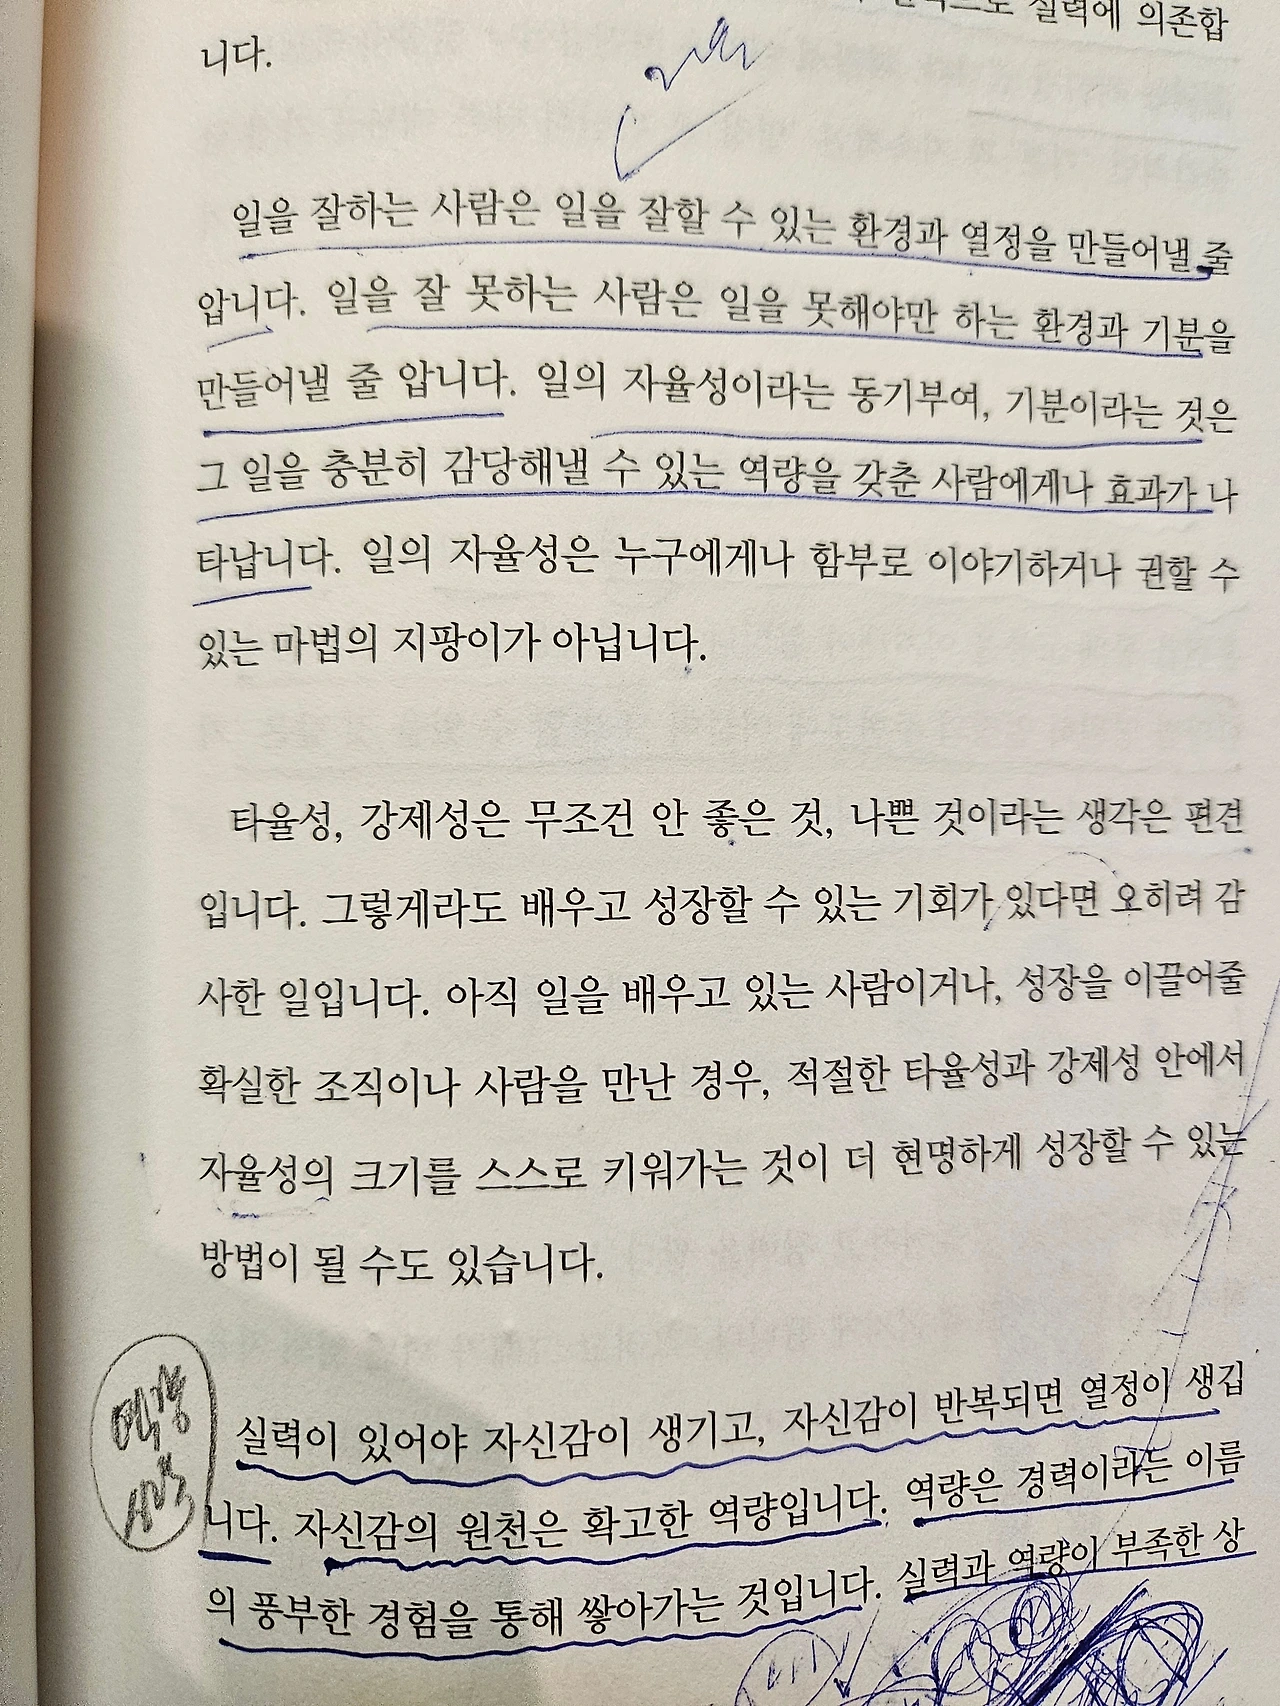 실력에 의존합
니다.
일을 잘하는 사람은 일을 잘할 수 있는 환경과 열정을 만들어낼 줄
압니다. 일을 잘 못하는 사람은 일을 못해야만 하는 환경과 기분을
만들어낼 줄 압니다. 일의 자율성이라는 동기부여, 기분이라는 것은
그 일을 충분히 감당해낼 수 있는 역량을 갖춘 사람에게나 효과가 나
타납니다. 일의 자율성은 누구에게나 함부로 이야기하거나 권할 수
있는 마법의 지팡이가 아닙니다.
타율성, 강제성은 무조건 안 좋은 것, 나쁜 것이라는 생각은 편견
입니다. 그렇게라도 배우고 성장할 수 있는 기회가 있다면 오히려 감
사한 일입니다. 아직 일을 배우고 있는 사람이거나, 성장을 이끌어줄
확실한 조직이나 사람을 만난 경우, 적절한 타율성과 강제성 안에서
자율성의 크기를 스스로 키워가는 것이 더 현명하게 성장할 수 있는
방법이 될 수도 있습니다.
역량
실력이 있어야 자신감이 생기고, 자신감이 반복되면 열정이 생깁
니다. 자신감의 원천은 확고한 역량입니다. 역량은 경력이라는 이름
의 풍부한 경험을 통해 쌓아가는 것입니다. 실력과 역량이 부족한 상